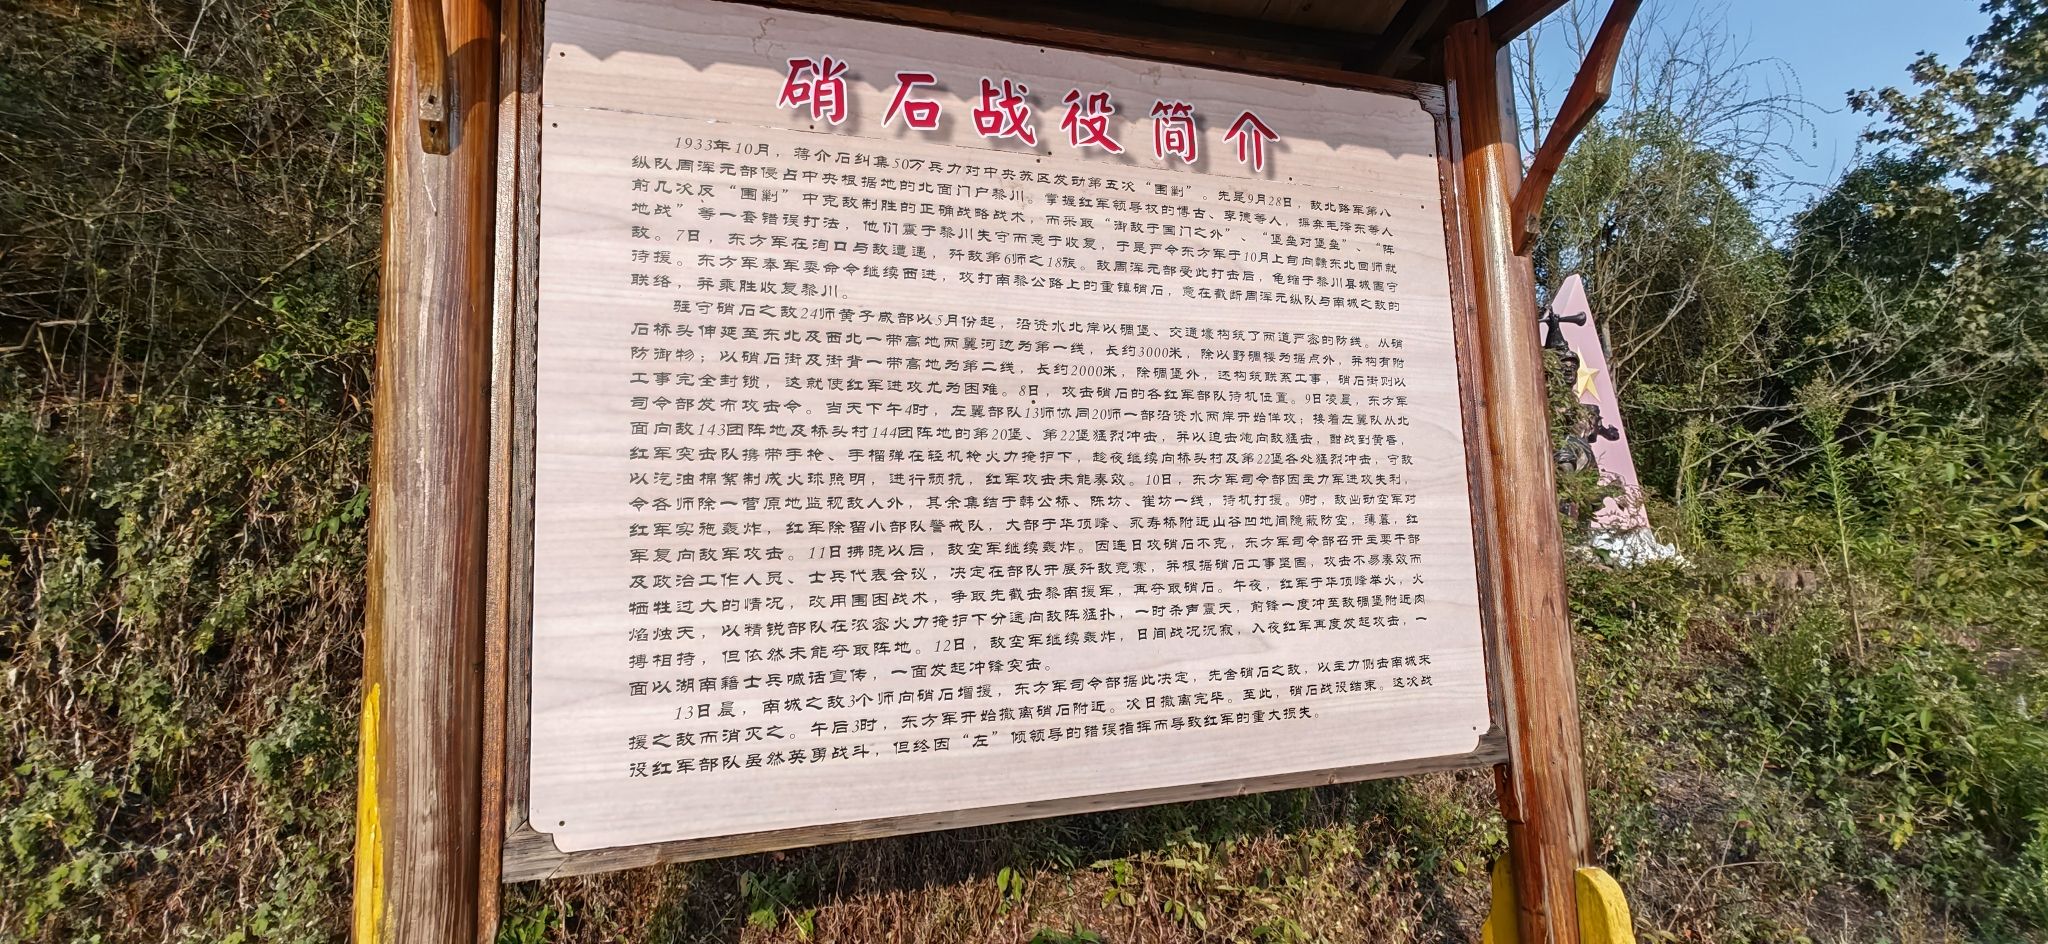 硝石战役简介
1933年10月，蒋介石纠集50万兵力对中央苏区发动第五次“围剿”。先是9月28日，敌北路军第八
纵队周浑元部侵占中央根据地的北面门户黎川。掌握红军领导权的博古、李德等人，摒弃毛泽东等人
前几次反“围剿”中克敌制胜的正确战略战术，而采取“御敌于国门之外”、“堡垒对堡垒”、“阵
地战”等一套错误打法，他们震于黎川失守而急于收复，于是严令东方军于10月上旬向赣东北回师就
敌。7日，东方军在洵口与敌遭遇，歼敌第6师之18旅。敌周浑元部受此打击后，龟缩于黎川县城固守
待援。东方军奉军委命令继续西进，攻打南黎公路上的重镇硝石，意在截断周浑元纵队与南城之敌的
联络，并乘胜收复黎川。
驻守硝石之敌24师黄子咸部以5月份起，沿资水北岸以碉堡、交通壕构筑了两道严密的防线。从硝
石桥头伸延至东北及西北一带高地两翼河边为第一线，长约3000米，除以野碉楼为据点外，并构有附
防御物；以硝石街及街背一带高地为第二线，长约2000米，除碉堡外，还构筑联系工事，硝石街则以
工事完全封锁，这就使红军进攻尤为困难。8日，攻击硝石的各红军部队待机位置。9日凌晨，东方军
司令部发布攻击令。当天下午4时，左翼部队13师协同20师一部沿资水两岸开始佯攻；接着左翼队从北
面向敌143团阵地及桥头村144团阵地的第20堡、第22堡猛烈冲击，并以迫击炮向敌猛击，酣战到黄昏，
红军突击队携带手枪、手榴弹在轻机枪火力掩护下，趁夜继续向桥头村及第22堡各处猛烈冲击，守敌
以汽油棉絮制成火球照明，进行顽抗，红军攻击未能奏效。10日，东方军司令部因主力军进攻失利，
令各师除一营原地监视敌人外，其余集结于韩公桥、陈坊、崔坊一线，待机打援。9时，敌出动空军对
红军实施轰炸，红军除留小部队警戒队，大部于华顶峰、永寿桥附近山谷凹地间隐蔽防空，薄暮，红
军复向敌军攻击。11日拂晓以后，敌空军继续轰炸。因连日攻硝石不克，东方军司令部召开主要干部
及政治工作人员、士兵代表会议，决定在部队开展歼敌竞赛，并根据硝石工事坚固，攻击不易奏效而
牺牲过大的情况，改用围困战术，争取先截击黎南援军，再夺取硝石。午夜，红军于华顶峰举火，火
焰烛天，以精锐部队在浓密火力掩护下分途向敌阵猛扑，一时杀声震天，前锋一度冲至敌碉堡附近肉
搏相持，但依然未能夺取阵地。12日，敌空军继续轰炸，日间战况沉寂，入夜红军再度发起攻击，一
面以湖南籍士兵喊话宣传，一面发起冲锋突击。
13日晨，南城之敌3个师向硝石增援，东方军司令部据此决定，先舍硝石之敌，以主力侧击南城来
援之敌而消灭之。午后3时，东方军开始撤离硝石附近。次日撤离完毕。至此，硝石战役结束。这次战
役红军部队虽然英勇战斗，但终因“左”倾领导的错误指挥而导致红军的重大损失。